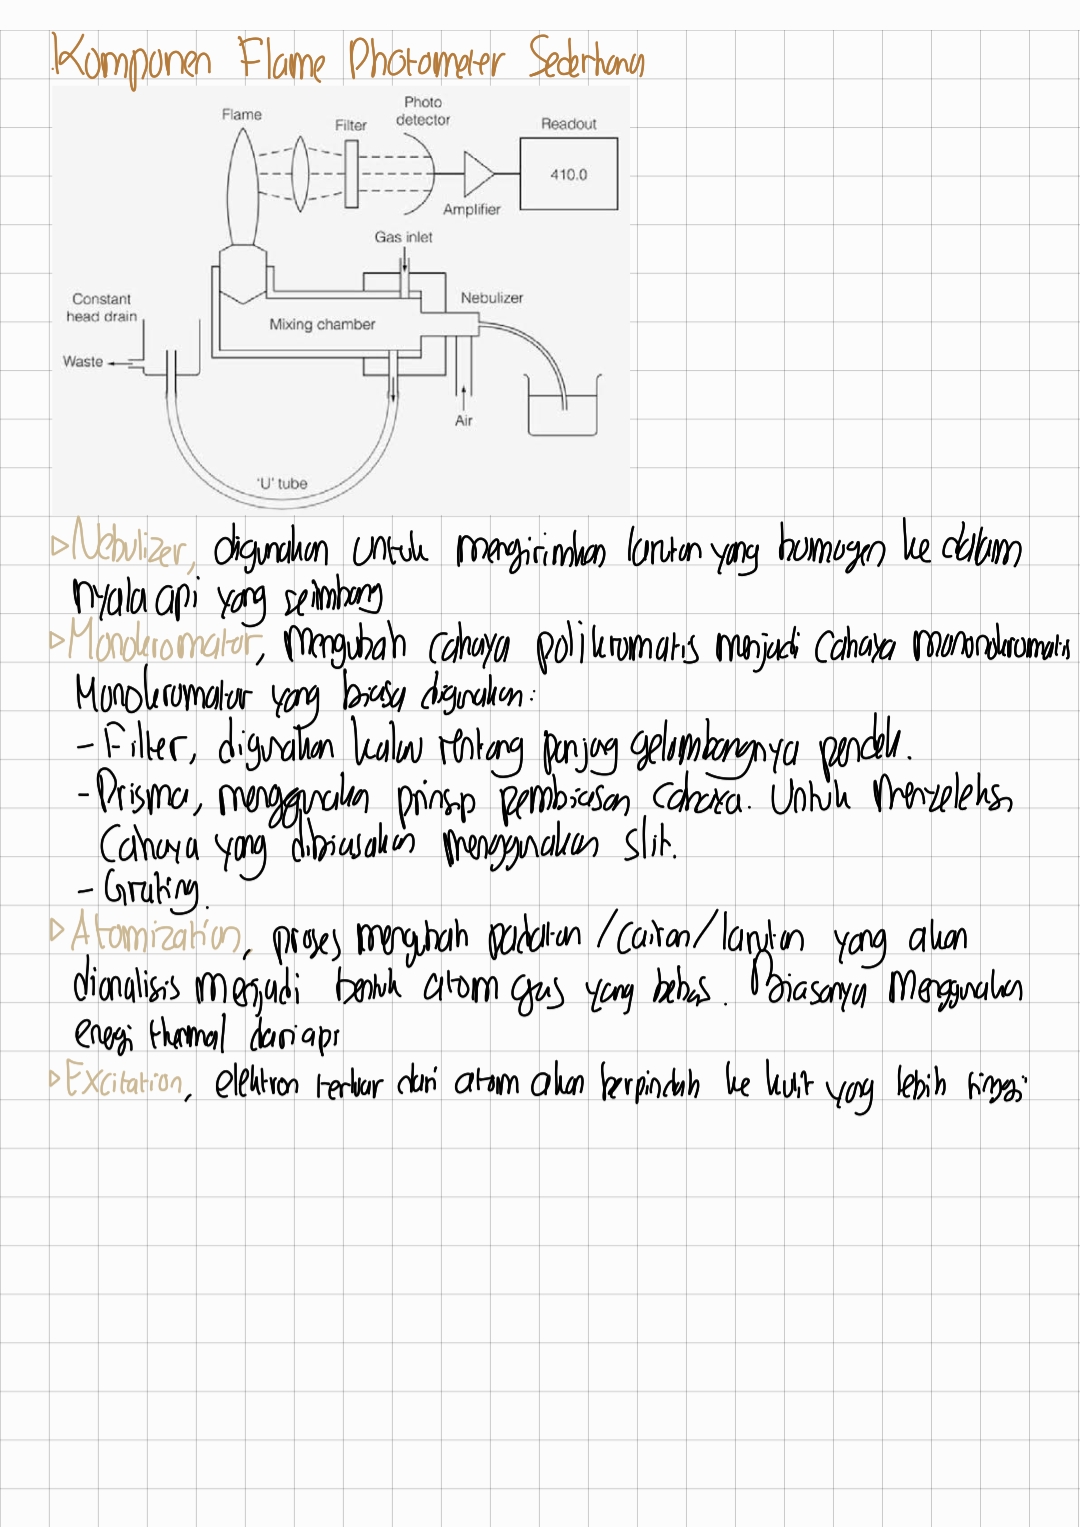 Komponen Flame Photometer Sederhana
Flame
Filter
Photo
detector
Readout
410.0
Amplifier
Gas inlet
Constant
head drain
Nebulizer
Mixing chamber
Waste
Air
'U' tube
▷ Nebulizer, digunakan untuk mengirimkan larutan yang homogen ke dalam
nyala api yang seimbang
▷ Monokromator, mengubah cahaya polikromatis menjadi cahaya monokromatis
Monokromator yang biasa digunakan:
- Filter, digunakan kalau rentang panjang gelombangnya pendek.
- Prisma, menggunakan prinsip pembiasan cahaya. Untuk menyeleksi
cahaya yang dibiasakan menggunakan slit.
- Grating.
▷ Atomization, proses mengubah padatan/cairan/larutan yang akan
dianalisis menjadi bentuk atom gas yang bebas. Biasanya menggunakan
energi thermal dari api
▷ Excitation, elektron terluar dari atom akan berpindah ke kulit yang lebih tinggi